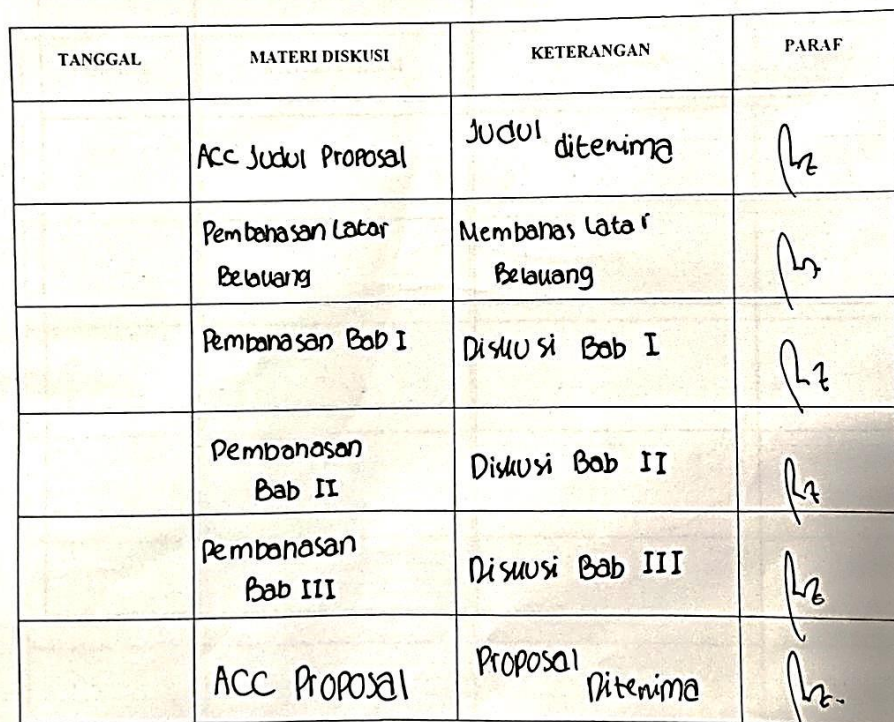 TANGGAL MATERI DISKUSI KETERANGAN PARAF
ACC Judul Proposal
Judul diterima
Pembahasan Latar
Belakang
Membahas Latar
Belakang
Pembahasan Bab I
Diskusi Bab I
Pembahasan
Bab II
Diskusi Bab II
Pembahasan
Bab III
Diskusi Bab III
ACC Proposal
Proposal
Diterima